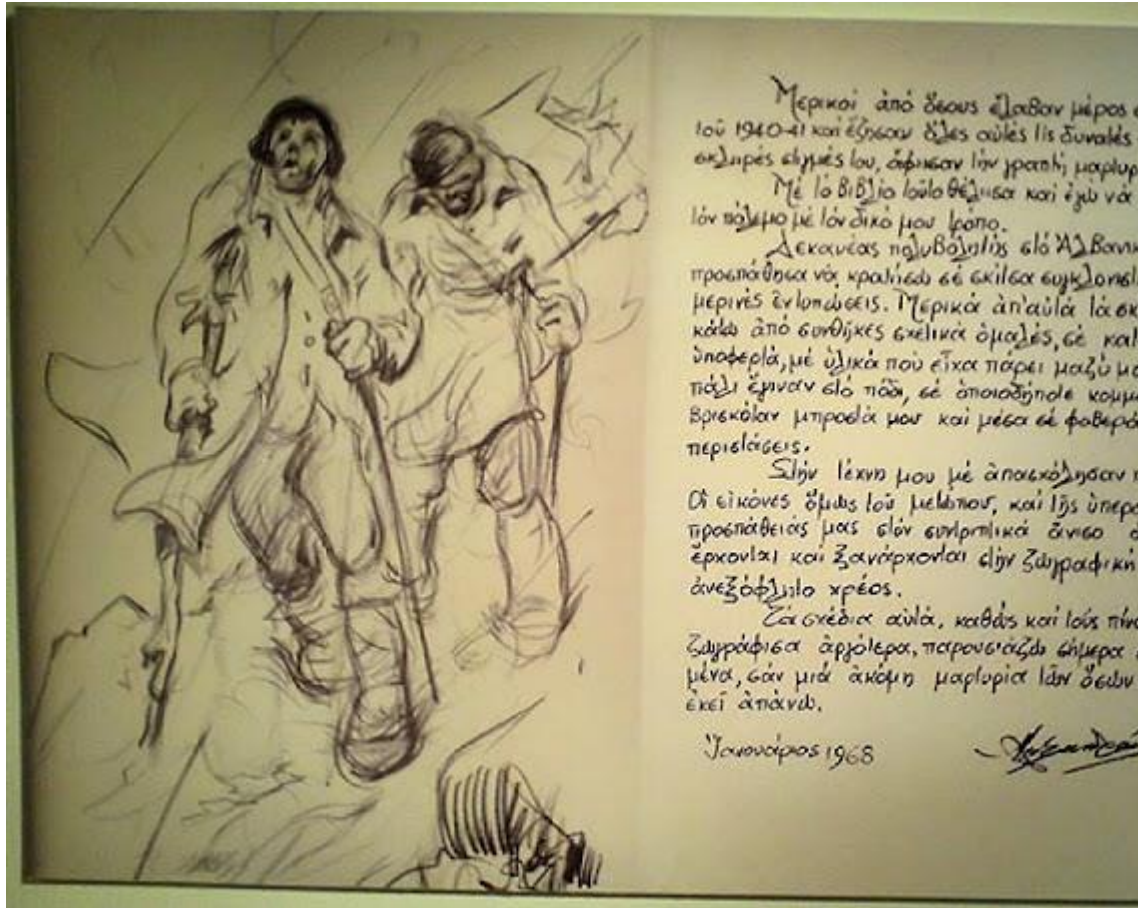 Μερικοί ἀπό ὅσους ἔλαβαν μέρος σ
τοῦ 1940-41 καί ἔζησαν ὅλες αὐτές τίς δυνατές
σκληρές στιγμές του, ἄφισαν τήν γραπτή μαρτυρ
Μέ τό βιβλίο τοῦτο θέλησα καί ἐγώ νά
τόν πόλεμο μέ τόν δικό μου τρόπο.
Δεκανέας πολυβολητής στό Ἀλβανι
προσπάθησα νά κρατήσω σέ σκίτσα συγκλονιστ
μερινές ἐντυπώσεις. Μερικά ἀπ' αὐτά τά σκ
κάτω από συνθῆκες σχετικά ὁμαλές, σέ κατ
ὑποφερτά, μέ ὑλικά πού εἶχα πάρει μαζύ μο
πάλι ἔγιναν στό πόδι, σέ ὁποιοδήποτε κομμ
βρισκόταν μπροστά μου καί μέσα σέ φοβερά
περιστάσεις.
Στήν τέχνη μου μέ ἀπασχόλησαν
Οἱ εἰκόνες ὅμως τοῦ μετώπου, καί τῆς ὑπερ
προσπάθειάς μας στόν συντριπτικά ἄνισο
ἔρχονται καί ξανάρχονται στήν ζωγραφική
ἀνεξόφλητο χρέος.
Τά σχέδια αὐτά, καθώς καί τούς πίνα
ζωγράφισα ἀργότερα, παρουσιάζω σήμερα
μένα, σάν μιά ἀκόμη μαρτυρία τῶν ὅσων
ἐκεῖ ἀπάνω.
Ἰανουάριος 1968